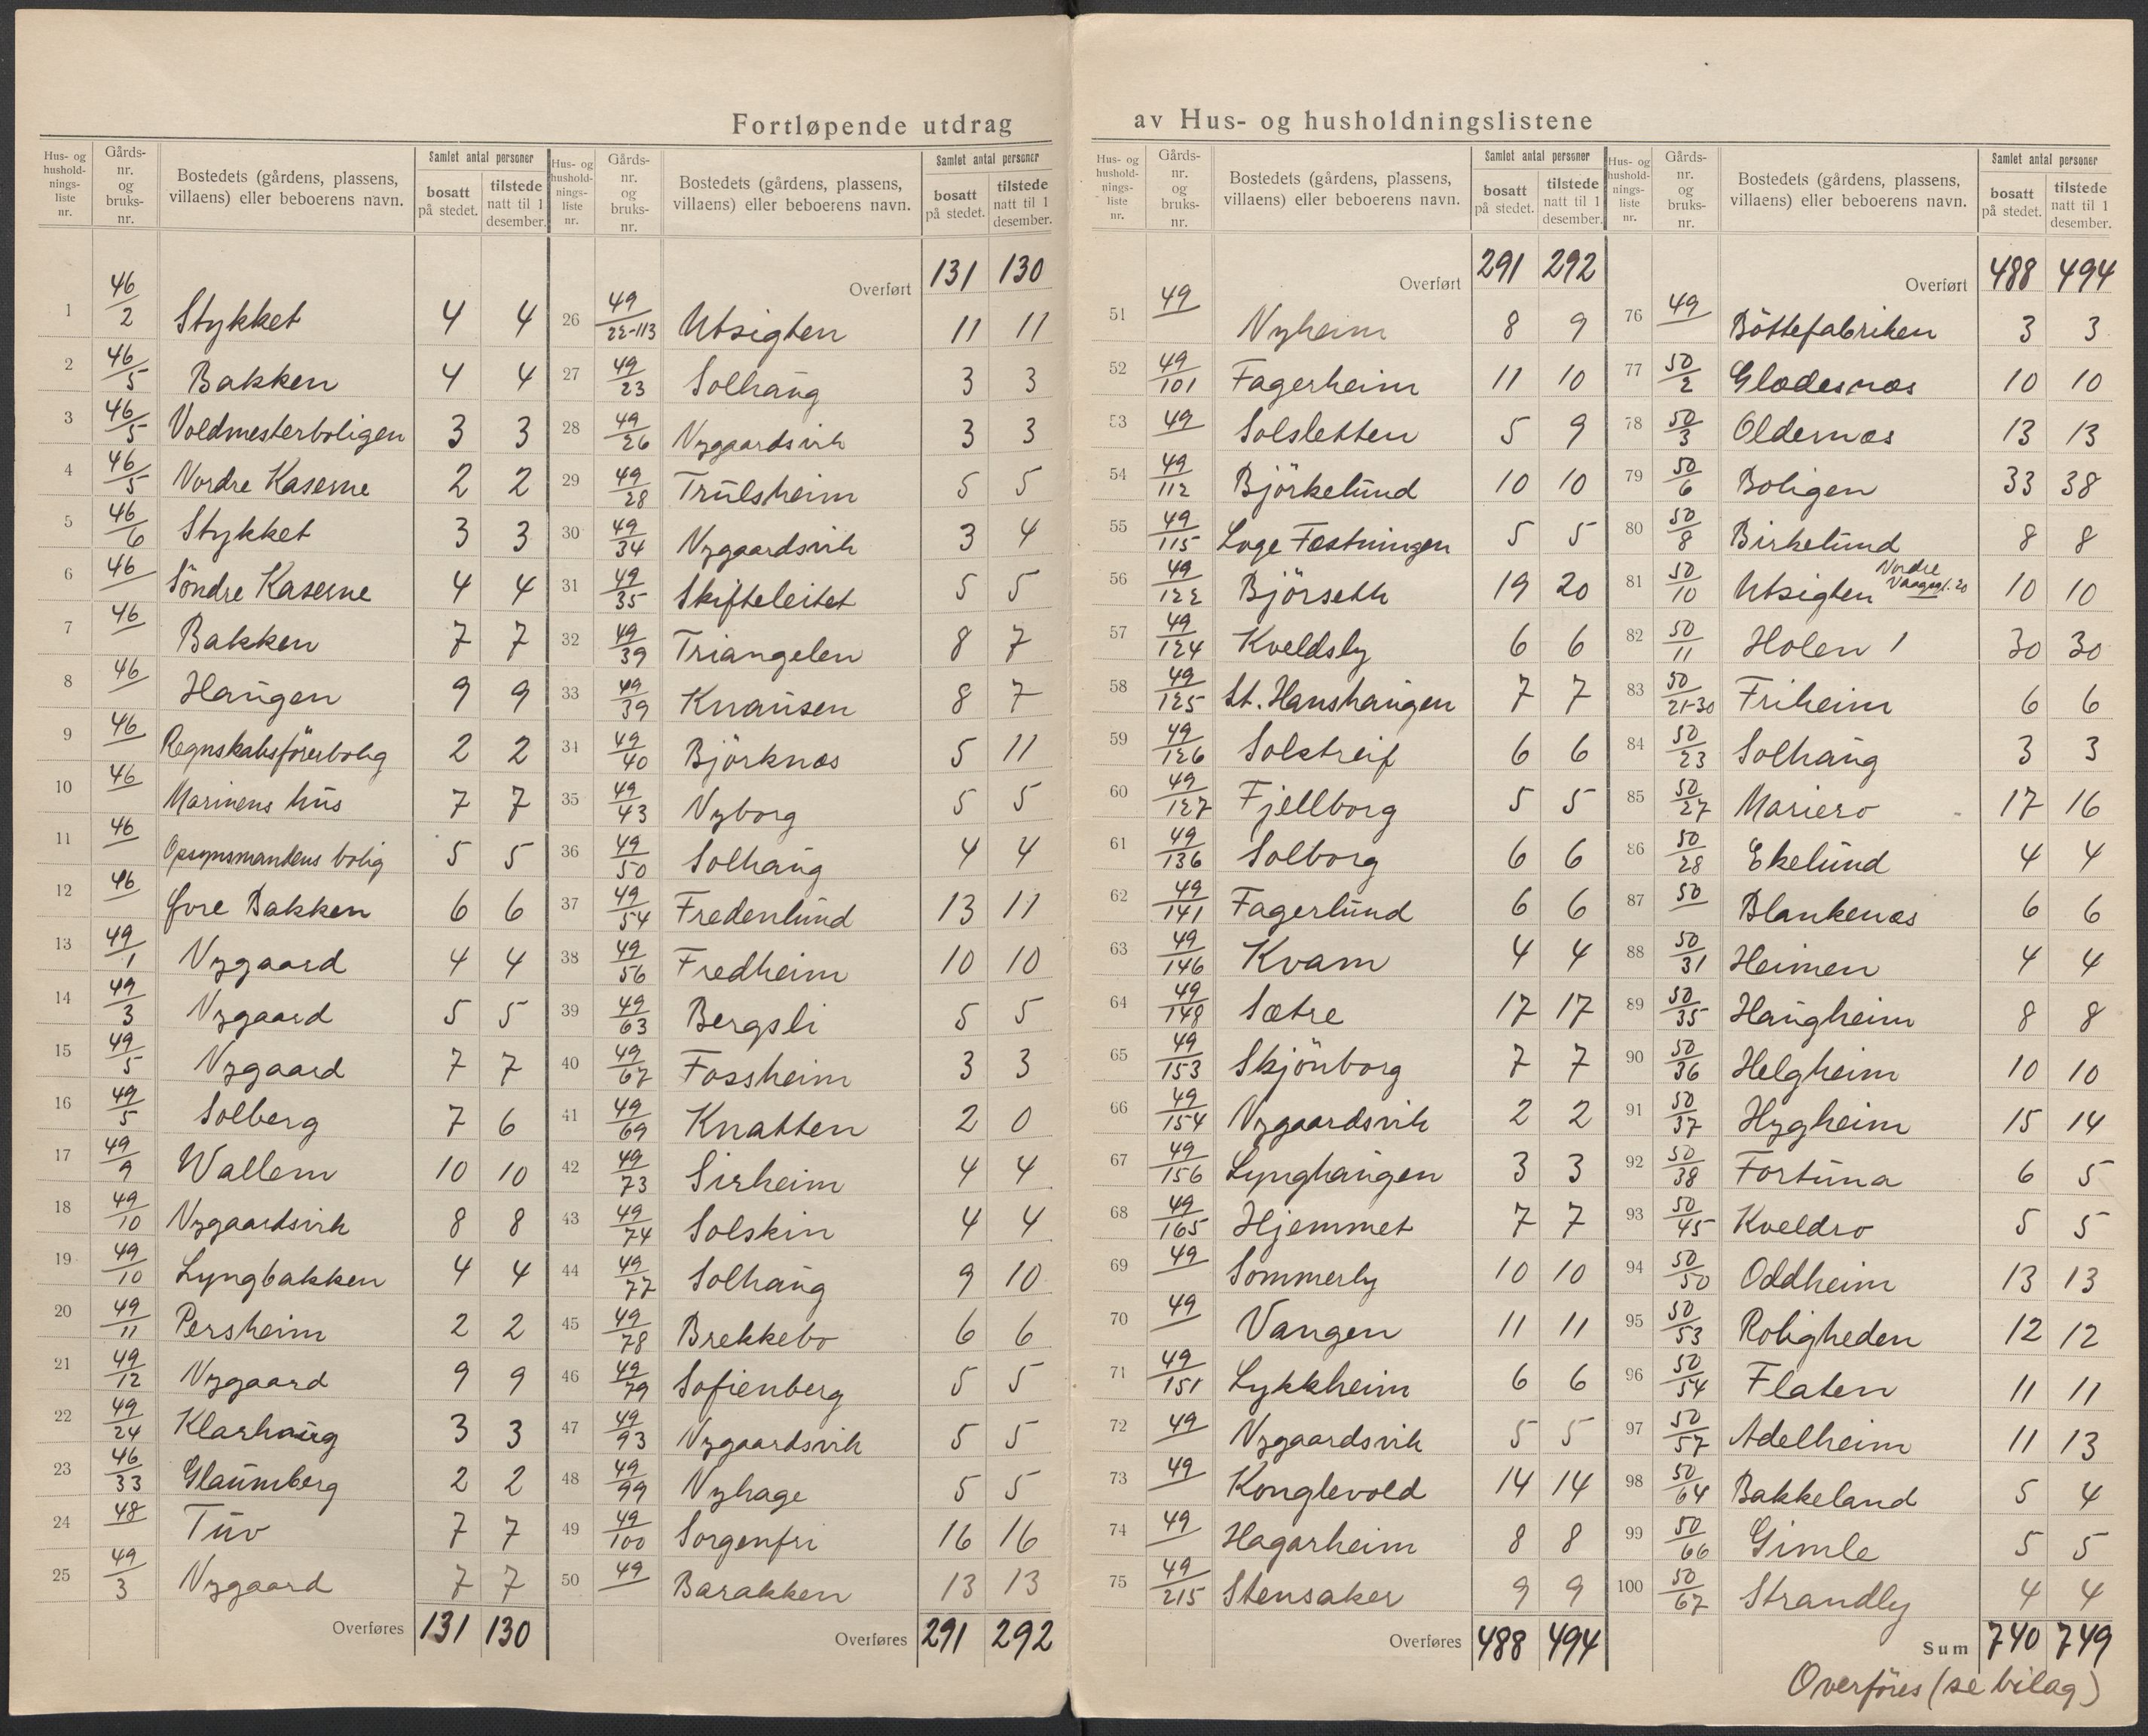 Fortløpende utdrag av Hus- og husholdningslistene
Hus- og husholdnings-liste nr. | Gårds-nr. og bruks-nr. | Bostedets (gårdens, plassens, villaens) eller beboerens navn. | Samlet antal personer bosatt på stedet. | tilstede natt til 1 desember.
1 46/2 Stykket 4 4
2 46/5 Bakken 4 4
3 46/5 Voldmesterboligen 3 3
4 46/5 Nordre Kaserne 2 2
5 46/6 Stykket 3 3
6 46/ Söndre Kaserne 4 4
7 46/ Bakken 7 7
8 46/ Haugen 9 9
9 46/ Regnskabsförerbolig 2 2
10 46/ Marinens hus 7 7
11 46/ Opsynsmandens bolig 5 5
12 46/ Øvre Bakken 6 6
13 49/1 Nygaard 4 4
14 49/3 Nygaard 5 5
15 49/5 Nygaard 7 7
16 49/5 Solberg 7 6
17 49/9 Wallem 10 10
18 49/10 Nygaardsvik 8 8
19 49/10 Lyngbakken 4 4
20 49/11 Persheim 2 2
21 49/12 Nygaard 9 9
22 49/24 Klarhaug 3 3
23 46/33 Glaumberg 2 2
24 48/ Tuv 7 7
25 49/3 Nygaard 7 7
Overføres 131 130
Hus- og husholdnings-liste nr. | Gårds-nr. og bruks-nr. | Bostedets (gårdens, plassens, villaens) eller beboerens navn. | Samlet antal personer bosatt på stedet. | tilstede natt til 1 desember.
Overført 131 130
26 49/22-113 Utsigten 11 11
27 49/23 Solhaug 3 3
28 49/26 Nygaardsvik 3 3
29 49/28 Trulsheim 5 5
30 49/34 Nygaardsvik 3 4
31 49/35 Skifteleitet 5 5
32 49/39 Triangelen 8 7
33 49/39 Knausen 8 7
34 49/40 Björknes 5 11
35 49/43 Nyborg 5 5
36 49/50 Solhaug 4 4
37 49/54 Fredenlund 13 11
38 49/56 Fredheim 10 10
39 49/63 Bergsli 5 5
40 49/67 Fossheim 3 3
41 49/69 Knatten 2 0
42 49/73 Sirheim 4 4
43 49/74 Solskin 4 4
44 49/77 Solhaug 9 10
45 49/78 Brekkebo 6 6
46 49/79 Sofienberg 5 5
47 49/93 Nygaardsvik 5 5
48 49/99 Nyhage 5 5
49 49/100 Sorgenfri 16 16
50 49/ Barakken 13 13
Overføres 291 292
Hus- og husholdnings-liste nr. | Gårds-nr. og bruks-nr. | Bostedets (gårdens, plassens, villaens) eller beboerens navn. | Samlet antal personer bosatt på stedet. | tilstede natt til 1 desember.
Overført 291 292
51 49/ Nyheim 8 9
52 49/101 Fagerheim 11 10
53 49/ Solsletten 5 9
54 49/112 Björkelund 10 10
55 49/115 Loge Fæstningen 5 5
56 49/122 Björseth 19 20
57 49/124 Kveldsly 6 6
58 49/125 St. Hanshaugen 7 7
59 49/126 Solstreif 6 6
60 49/127 Fjellborg 5 5
61 49/136 Solborg 6 6
62 49/141 Fagerlund 6 6
63 49/146 Kvam 4 4
64 49/148 Sætre 17 17
65 49/153 Skjönborg 7 7
66 49/154 Nygaardsvik 2 2
67 49/156 Lynghaugen 3 3
68 49/165 Hjemmet 7 7
69 49/ Sommerly 10 10
70 49/ Vangen 11 11
71 49/151 Lykkheim 6 6
72 49/ Nygaardsvik 5 5
73 49/ Konglevold 14 14
74 49/ Hagarheim 8 8
75 49/215 Stensaker 9 9
Overføres 488 494
Hus- og husholdnings-liste nr. | Gårds-nr. og bruks-nr. | Bostedets (gårdens, plassens, villaens) eller beboerens navn. | Samlet antal personer bosatt på stedet. | tilstede natt til 1 desember.
Overført 488 494
76 49/ Böttefabriken 3 3
77 50/2 Gladesnæs 10 10
78 50/3 Oldernæs 13 13
79 50/6 Boligen 33 38
80 50/8 Birkelund 8 8
81 50/10 Utsigten Nordre 10 10
82 50/11 Holen 1 30 30
83 50/21-30 Friheim 6 6
84 50/23 Solhaug 3 3
85 50/27 Mariero 17 16
86 50/28 Ekelund 4 4
87 50/ Blankenæs 6 6
88 50/31 Heimen 4 4
89 50/35 Haugheim 8 8
90 50/36 Helgheim 10 10
91 50/37 Hygheim 15 14
92 50/38 Fortuna 6 5
93 50/45 Kveldro 5 5
94 50/50 Oddheim 13 13
95 50/53 Roligheden 12 12
96 50/54 Flaten 11 11
97 50/57 Adelheim 11 13
98 50/64 Bakkeland 5 4
99 50/66 Gimle 5 5
100 50/67 Strandly 4 4
Sum 740 749
Overföres (se bilag)